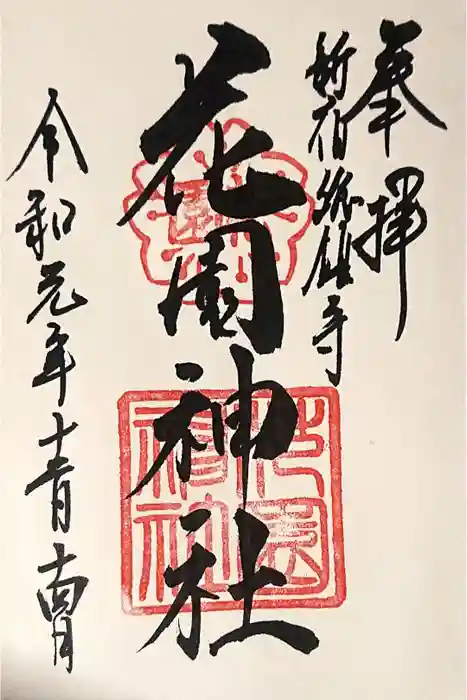 奉拝
新宿総鎮守
花園神社
令和元年十一月十四日
花園
神社